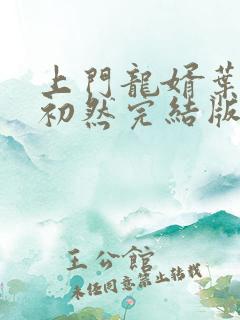 上門龍婿葉
初然完結版
王公館
未經同意禁止轉載